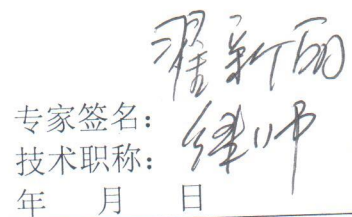 专家签名：翟新丽
技术职称：律师
年 月 日